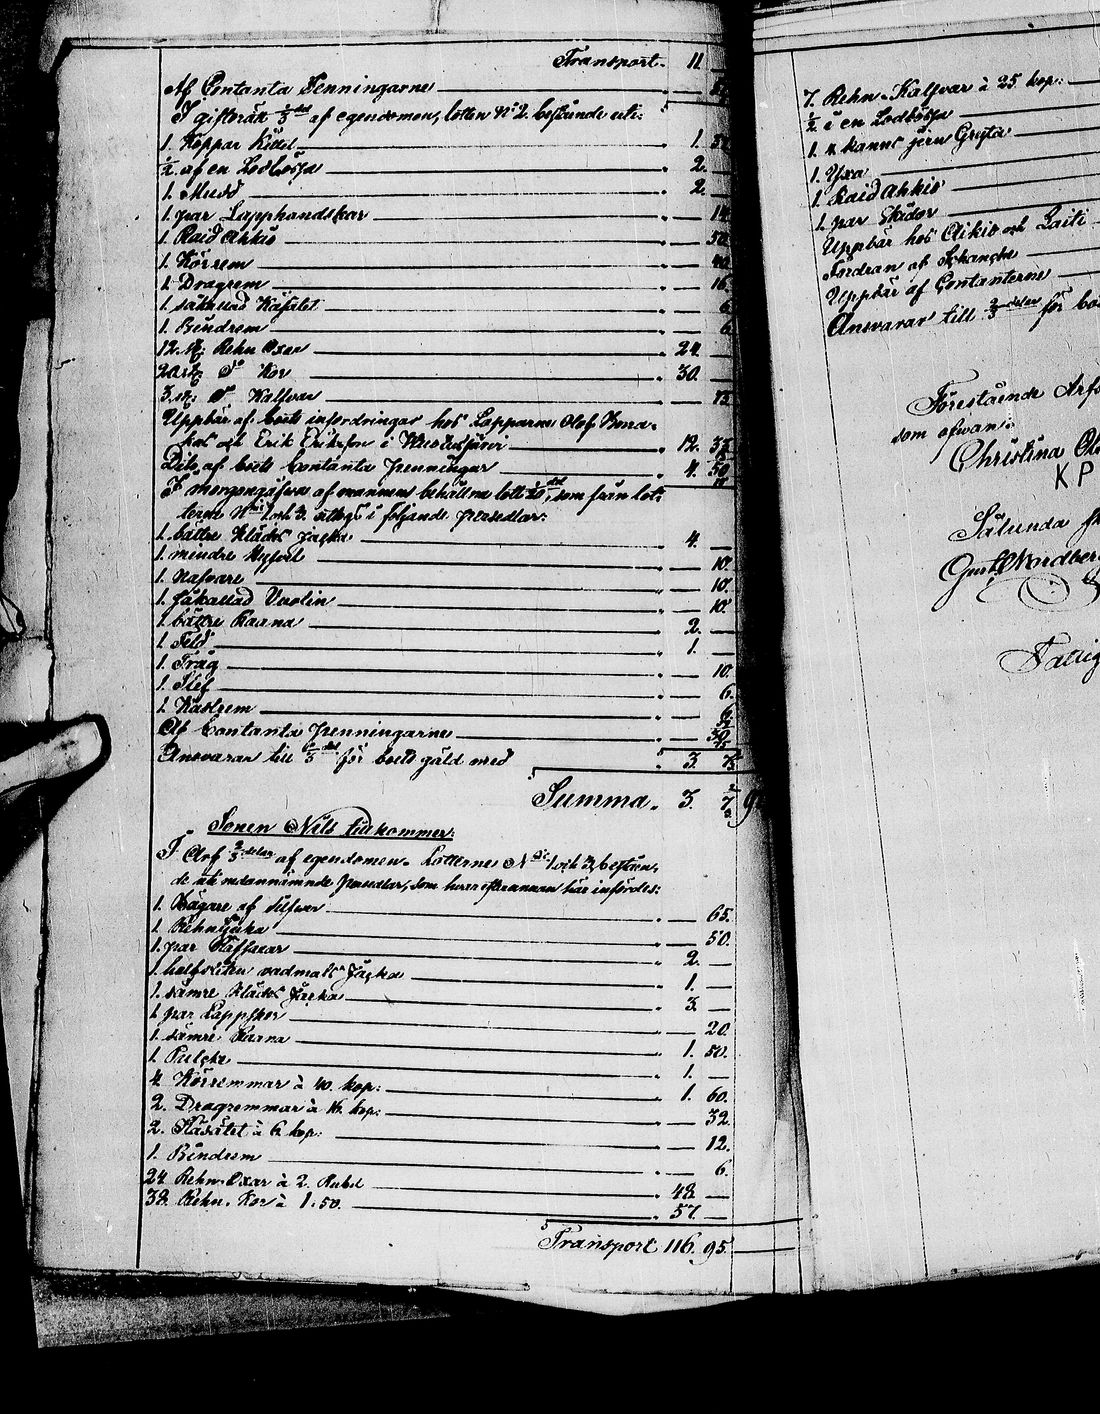 Transport. 11 —
Af Contanta Penningarne
I giftorätt 1/3 del af egendomen, lotten No 2. bestående uti:
1. Koppar Kittel 1.
1/2 af en Lodbössa 2. —
1. Mudd 2. —
1. par Lapphandskar — 14
1. Raid Ahkio — 50
1. Körrem — 40
1. Dragrem — 16
1. såkallad Käsätet — 6
1. Bindrem — 6
12. st: Rehn Oxar 24. —
20 st: Do Kor 30. —
3. st: Do Kalfvar — 75
Uppbär af boets infordringar hos Lapparne Olof
och Erik Eriksson i 12.
Dito af boets Contanta penningar 4. 50
I morgongåfva af mannens behållna lott 1/20 del, som från lot-
terne No 1 och 3. uttogs i följande persedlar:
1. bättre Klädes Jacka 4. —
1. mindre — 10.
1. Nafvare — 10.
1. såkallad — 10.
1. bättre Raana 2. —
1. Feld 1. —
1. Tråg — 10.
1. Slef — 6.
1. Kastrem — 6
Af Contanta penningarne
Ansvarar till för boets gäld med 3.
Summa. 3.
Sonen Nils tillkommer:
I Arf 2/3 delar af egendomen. Lotterne No 1 och 3, beståen-
de uti nedannämnde persedlar, som hvar efter annan här infördes:
1. Bägare af Silfver — 65.
1. — 50.
1. par 2. —
1. halfsliten vadmals Jacka 1. —
1. sämre Klädes Jacka 3. —
1. par Lappskor — 20.
1. sämre Raana 1. 50.
1. Pulcka 1. —
4. Körremmar à 40. kop: 1. 60.
2. Dragremmar à 16. kop: — 32.
2. Käsätet à 6. kop: — 12.
1. Bindrem — 6.
24. Rehn. Oxar à 2. Rubel 48. —
38. Rehn. Kor à 1.50. 57. —
Transport 116. 95.
7. Rehn. Kalfvar à 25. kop:
1/2 i en Lodbössa
1. kanns jern Gryta
1. Yxa
1. Raid Ahkio
1. par Skidor
Uppbär hos Aikio och
Fordran af
Uppbär af Contanterne
Ansvarar till 2/3 delar för bo
Förestående Arfs
som ofvan:
Christina
K P
Sålunda
Gust. Nordberg
Fattig